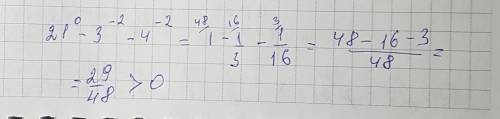 21⁰ - 3⁻² - 4⁻² = ⁴⁸/1 - ¹⁶/1/3 - ³/1/16 = (48 - 16 - 3)/48 =
= 29/48 > 0